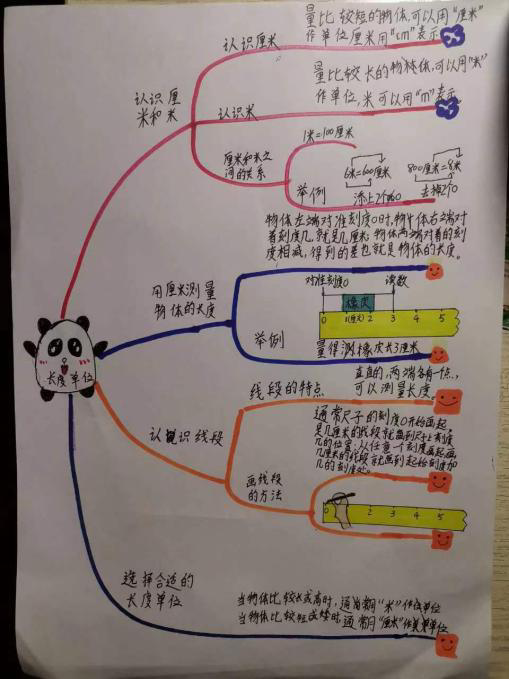 量比较短的物体,可以用"厘米"
作单位厘米用"cm"表示
认识厘米
量比较长的物体,可以用"米"
作单位,米可以用"m"表示
认识厘
米和米
认识米
1米=100厘米
厘米和米之
间的关系
6米=600厘米
800厘米=8米
举例
添上2个0
去掉2个0
物体左端对准刻度0时,物体右端对
着刻度几,就是几厘米;物体两端对着的刻
度相减,得到的差也就是物体的长度。
用厘米测量
物体的长度
对准刻度0
读数
橡皮
0 1(厘米) 2 3 4 5
举例
量得测橡皮长3厘米
长度单位
直直的,两端各有一点,
可以测量长度。
线段的特点
认识线段
通常尺子的刻度0开始画起,
是几厘米的线段就画到尺上刻度
几的位置;从任意一个刻度画起,画
几厘米的线段就画到起始刻度加
几的刻度处。
画线段
的方法
0 2 3 4 5
选择合适的
长度单位
当物体比较长或高时,通常用"米"作单位
当物体比较短或矮时,通常用"厘米"作单位